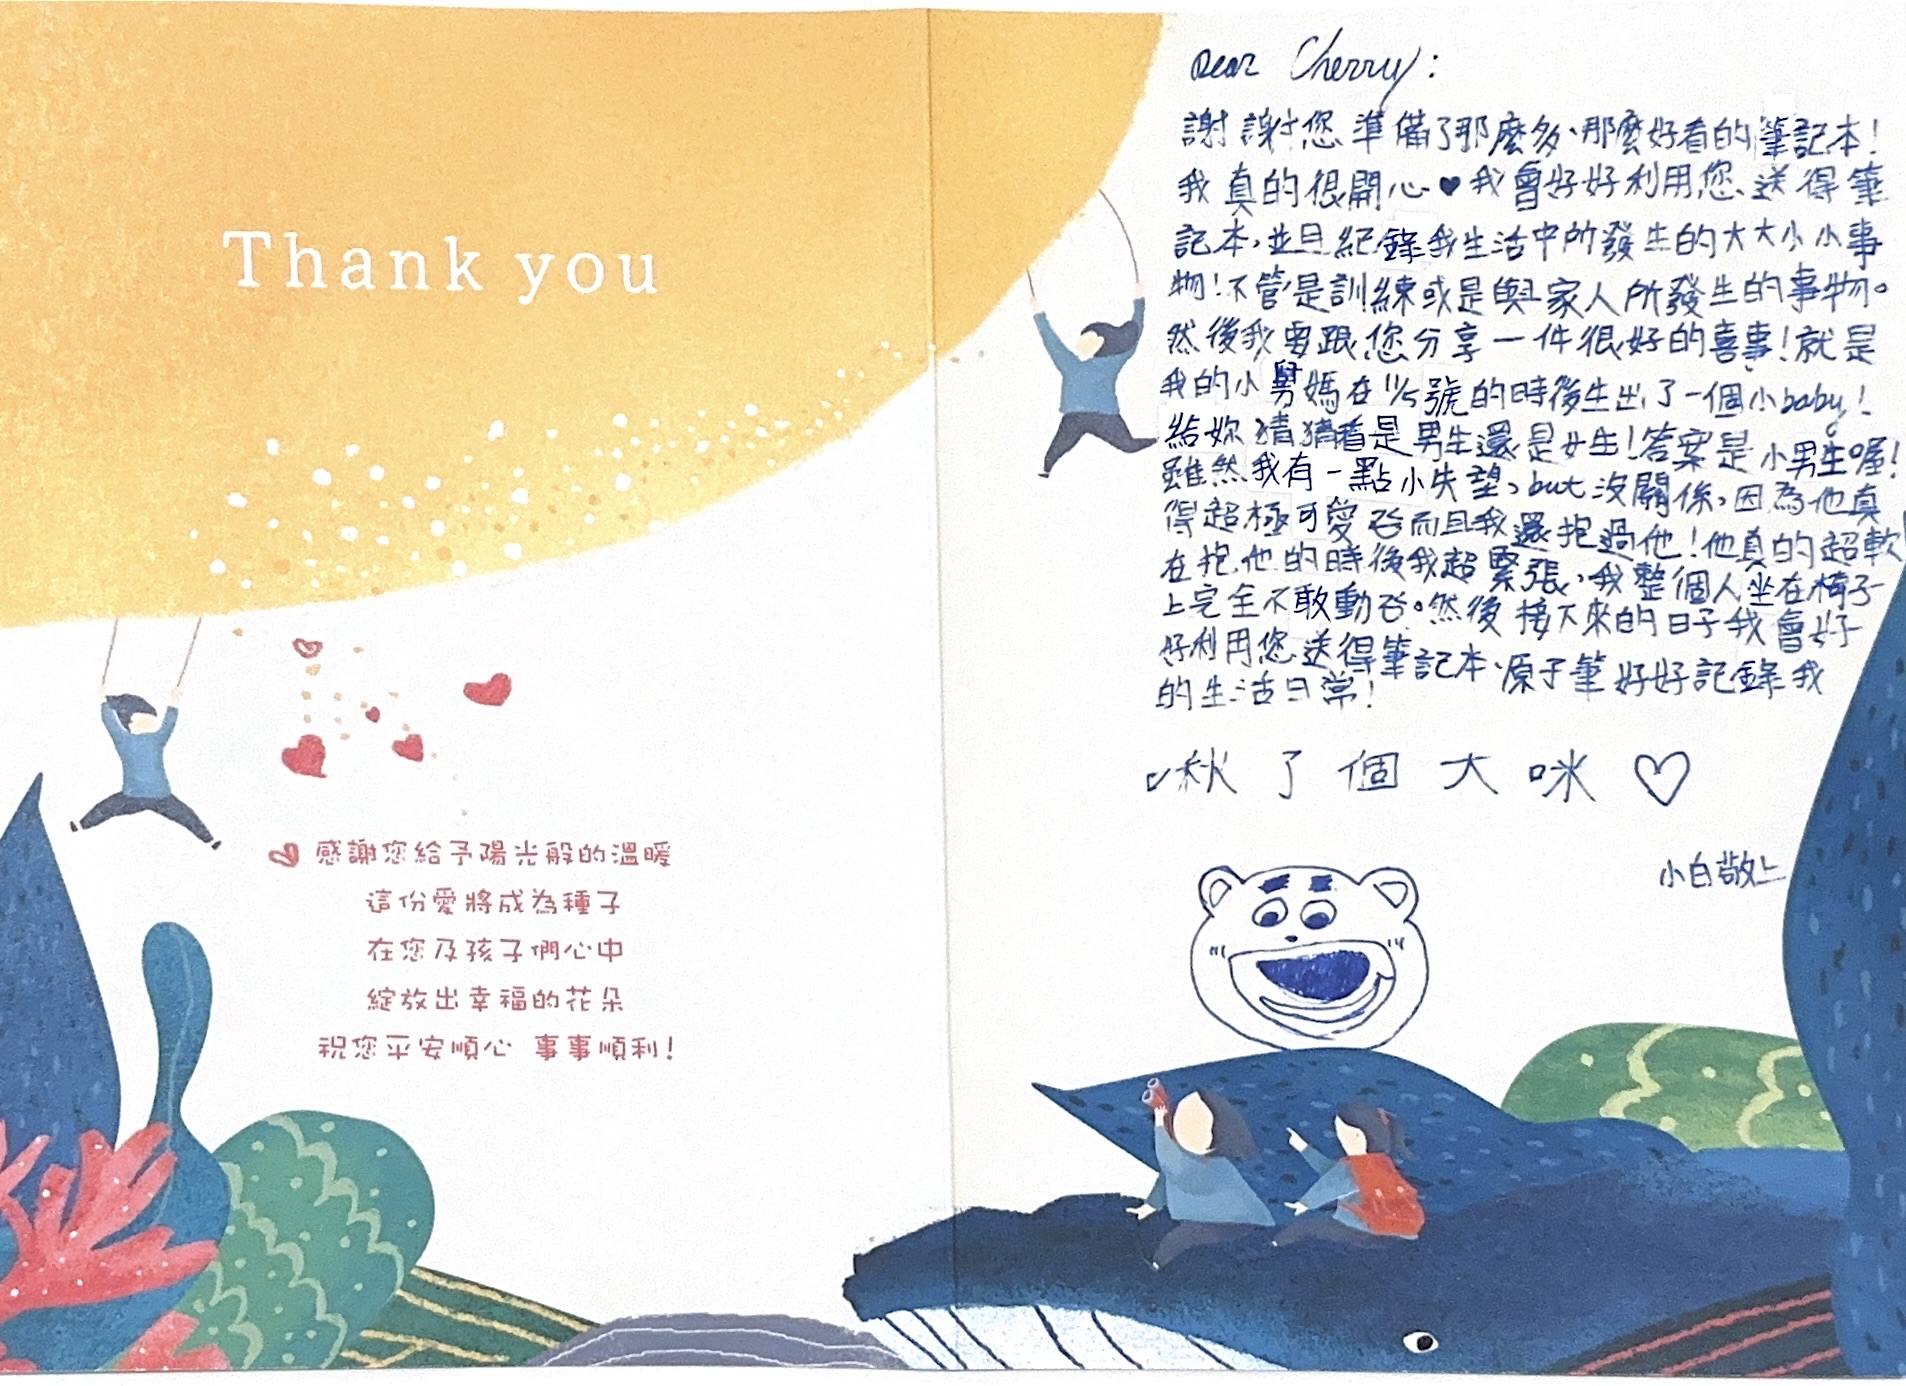 Thank you
感謝您給予陽光般的溫暖
這份愛將成為種子
在您及孩子們心中
綻放出幸福的花朵
祝您平安順心 事事順利！
Dear Cherry：
謝謝您準備了那麼多、那麼好看的筆記本！
我真的很開心♥我會好好利用您送得筆
記本，並且紀錄我生活中所發生的大大小小事
物！不管是訓練或是與家人所發生的事物。
然後我要跟您分享一件很好的喜事！就是
我的小舅媽在11/5號的時後生出了一個小baby！
給妳猜猜看是男生還是女生！答案是小男生喔！
雖然我有一點小失望，but沒關係，因為他真
得超極可愛 而且我還抱過他！他真的超軟！
在抱他的時後我超緊張，我整個人坐在椅子
上完全不敢動 。然後接下來的日子我會好
好利用您送得筆記本、原子筆好好記錄我
的生活日常！
啾了個大咪♡
小白敬上